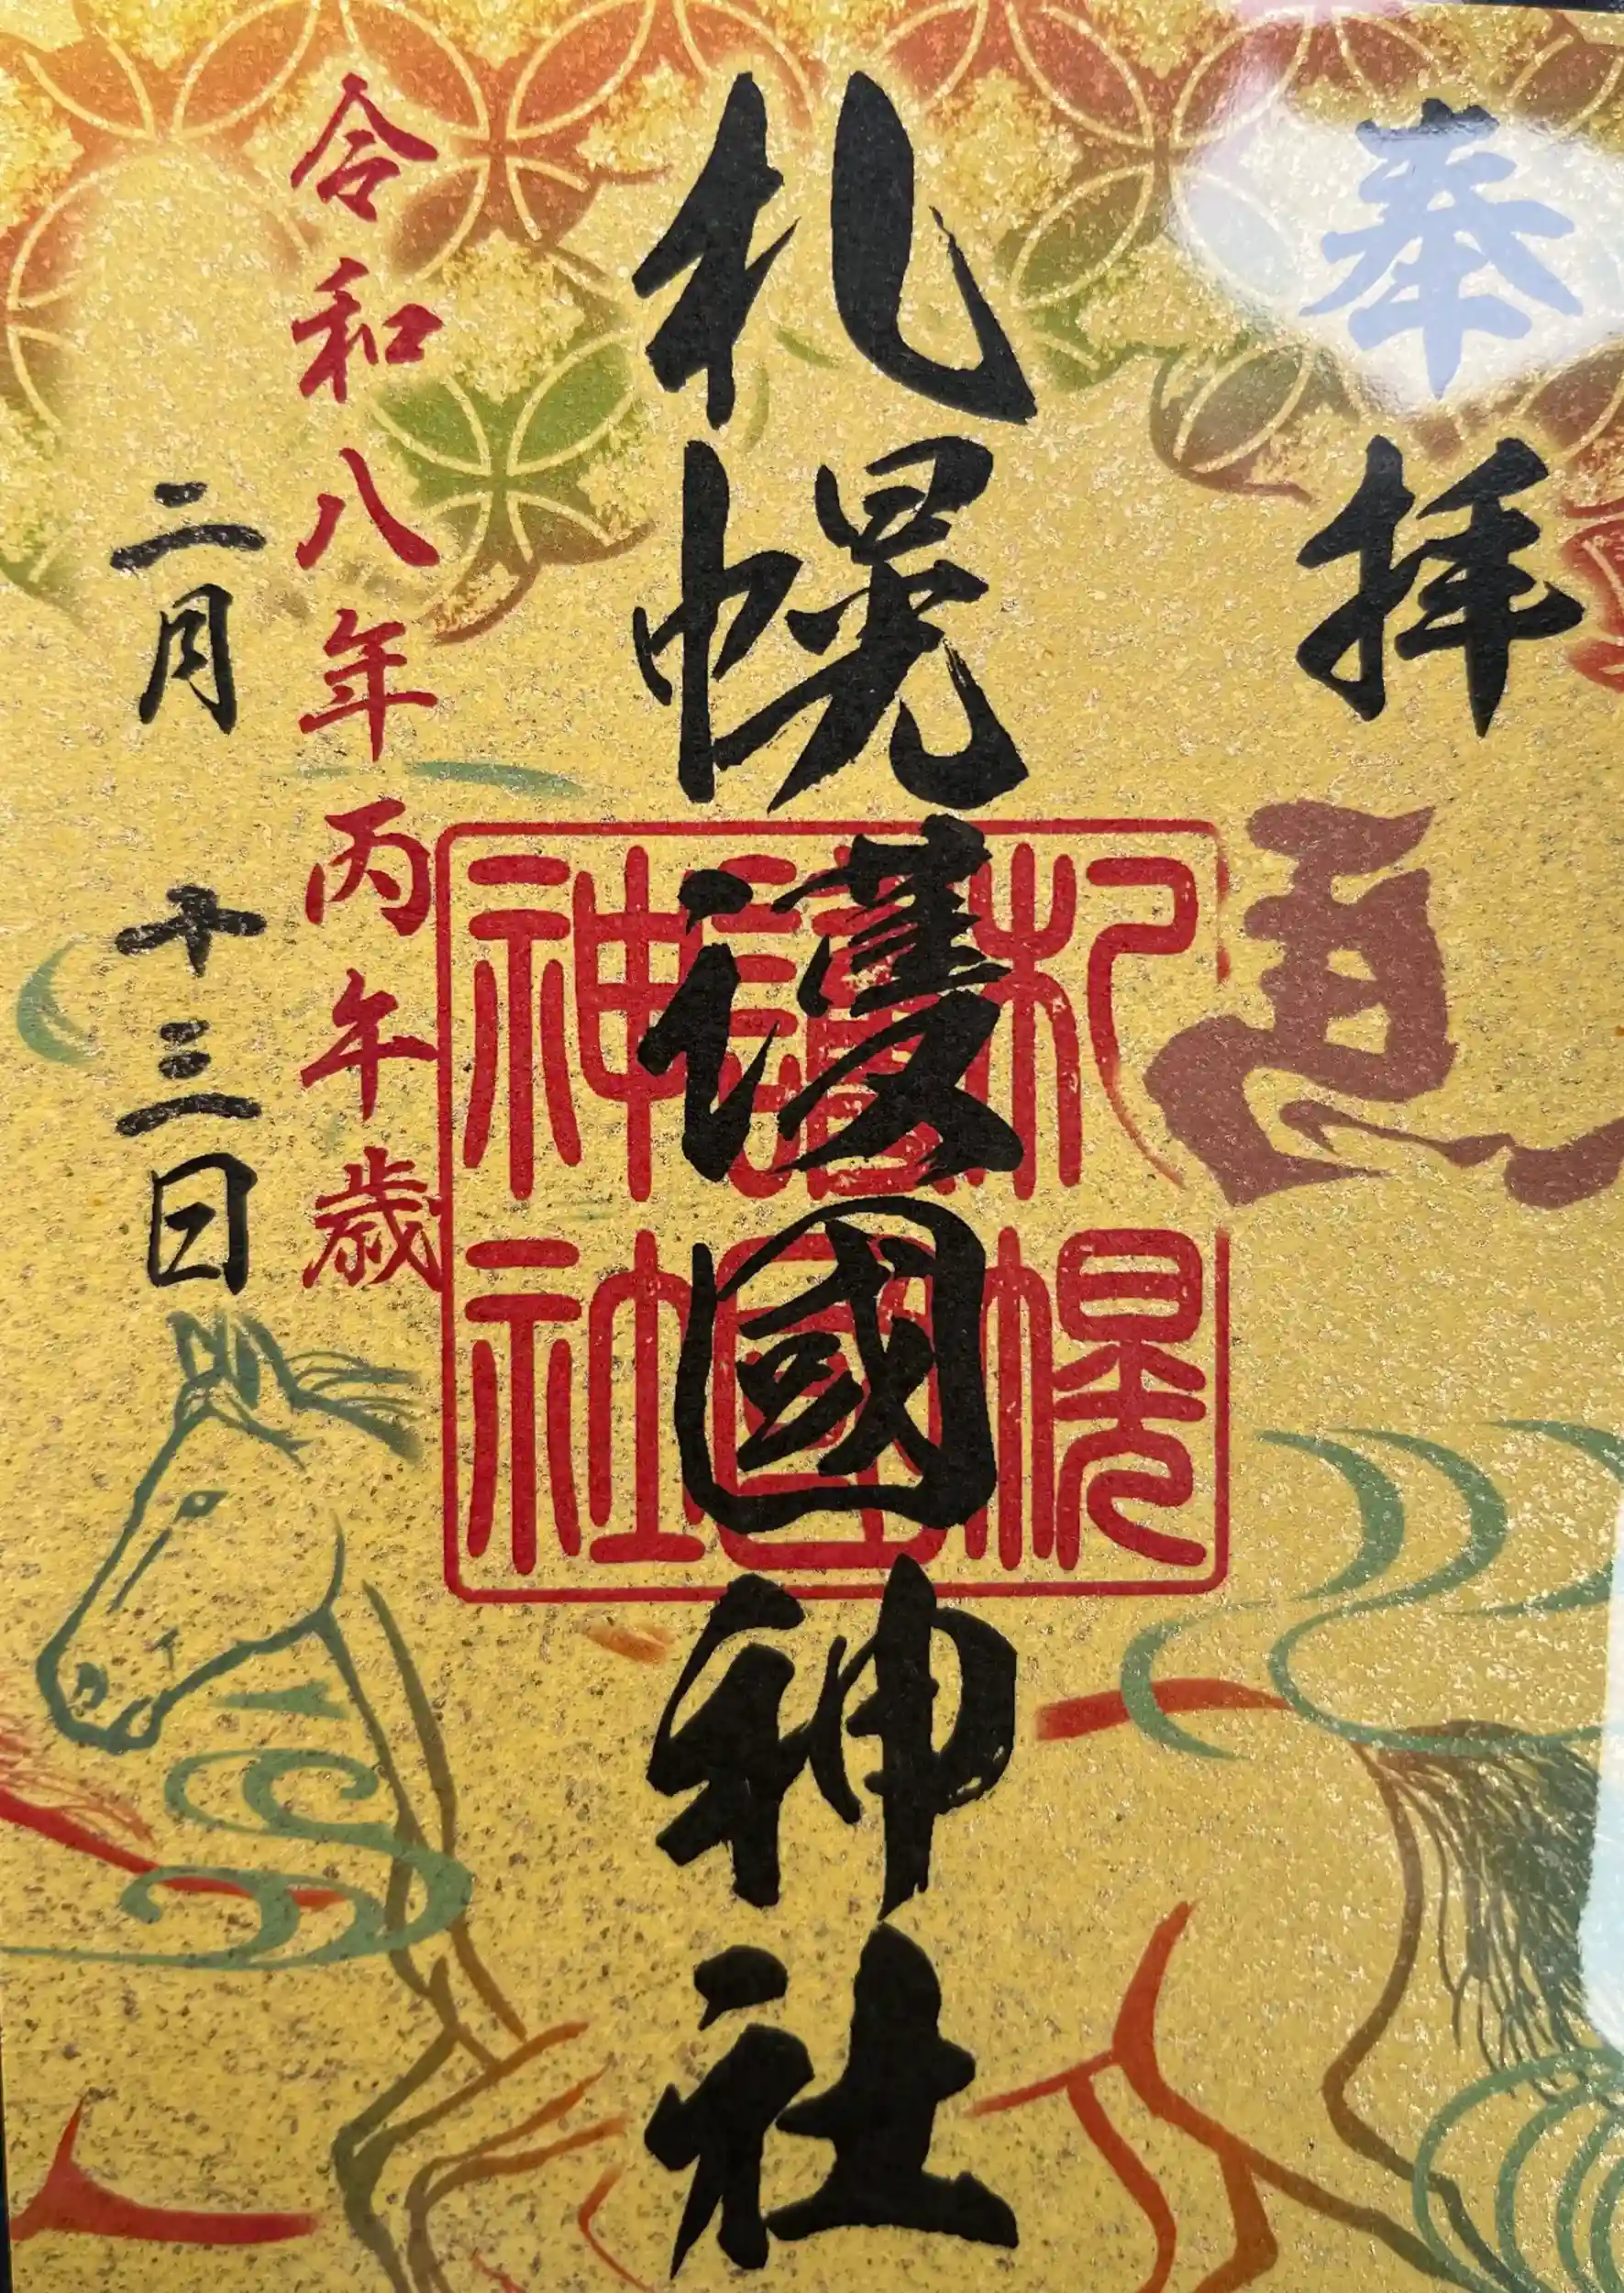 奉拝
馬
札幌護國神社
札幌
護國
神社
令和八年丙午歳
二月十三日